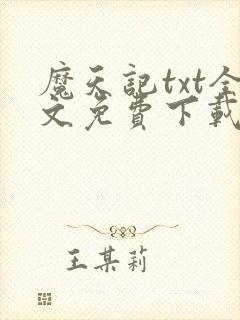 魔天記txt全
文免費下載
王某莉